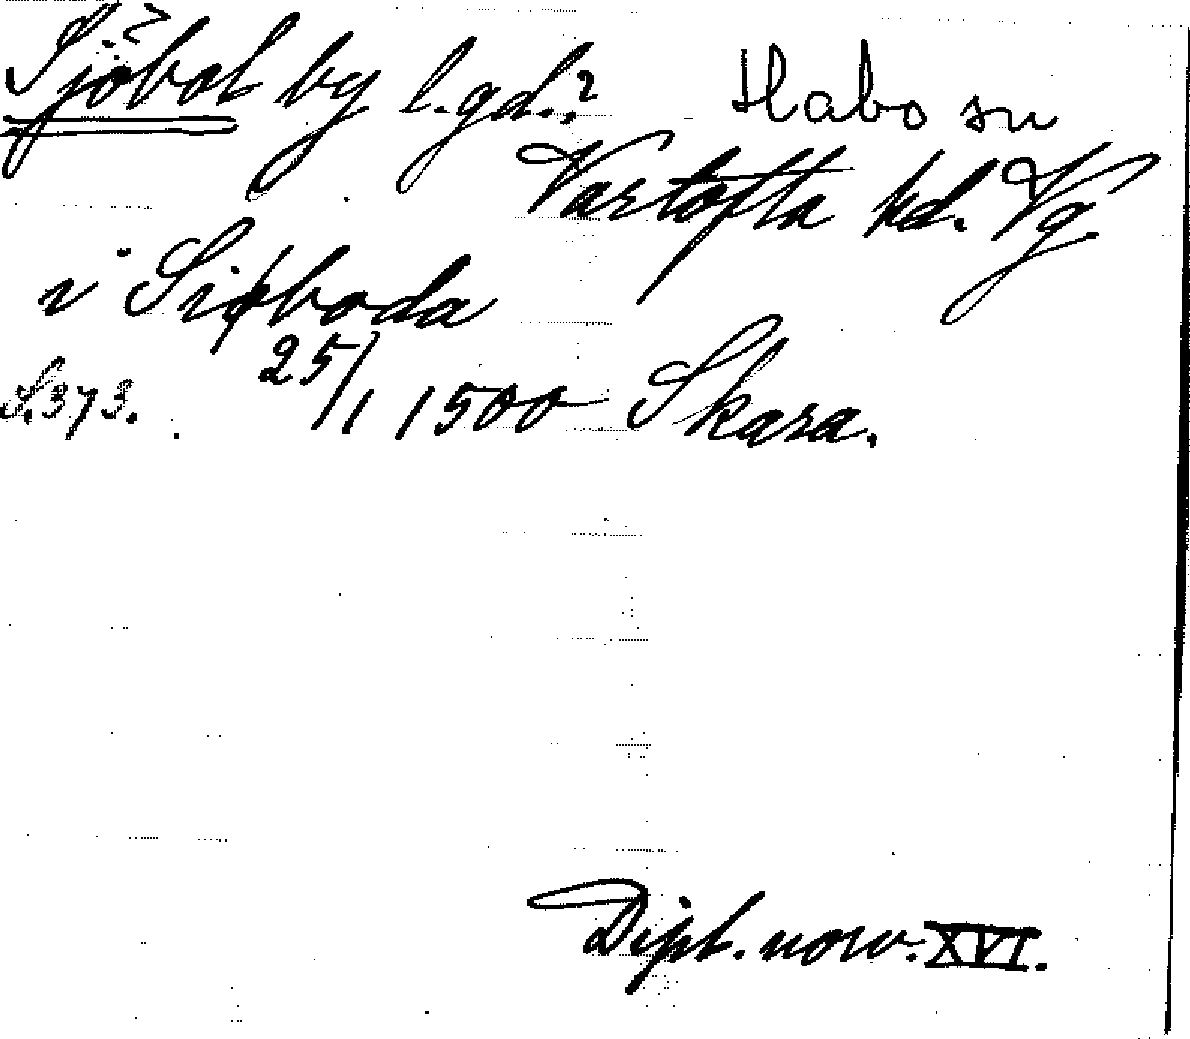 Sjöbol by l.gd.? Habo sn
Vartofta hd. Vg
i Siøboda
S.373. 25/1 1500 Skara.
Dipl. norv. XVI.